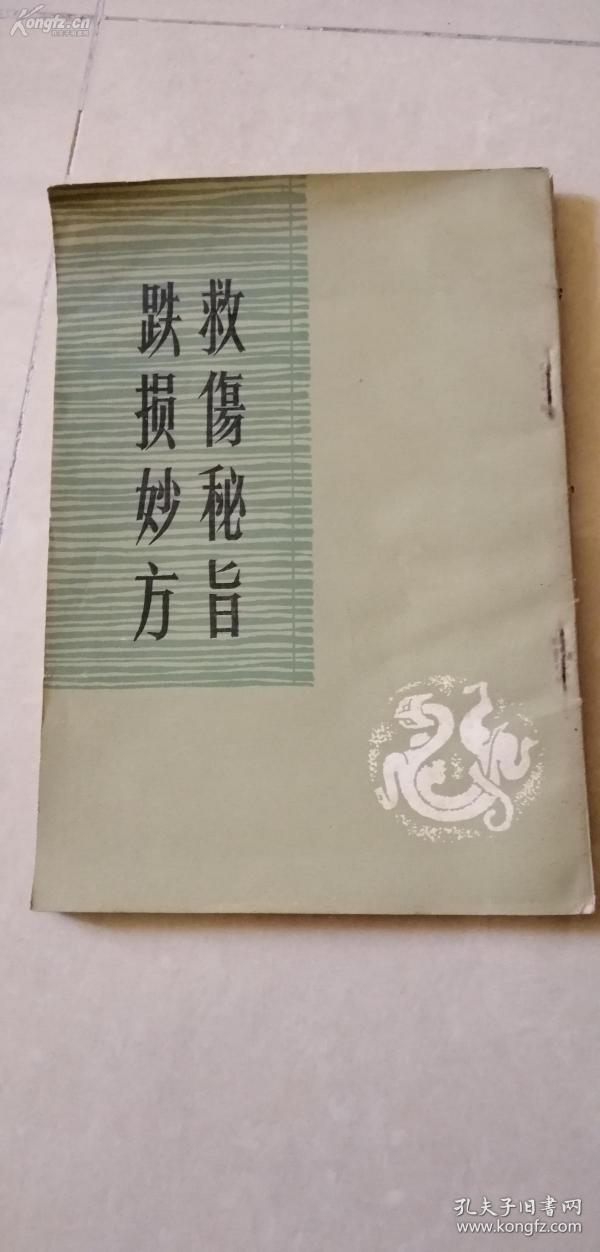 Kongfz.cn
救傷秘旨
跌损妙方
孔夫子旧书网
www.kongfz.com